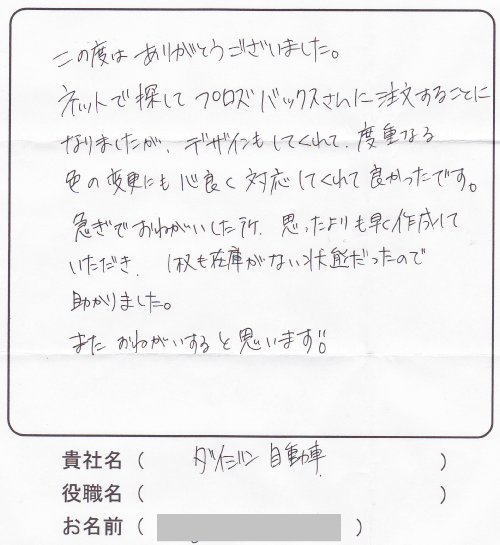 この度は ありがとうございました。
ネットで探して プロズバックスさんに注文することに
なりましたが、デザインもしてくれて、度重なる
色の変更にも心良く対応してくれて良かったです。
急ぎでおねがいした所、思ったよりも早く作成して
いただき、1枚も在庫がない状態だったので
助かりました。
また おねがいすると思います!!
貴社名 ( ダイシン自動車 )
役職名 ( )
お名前 ( )